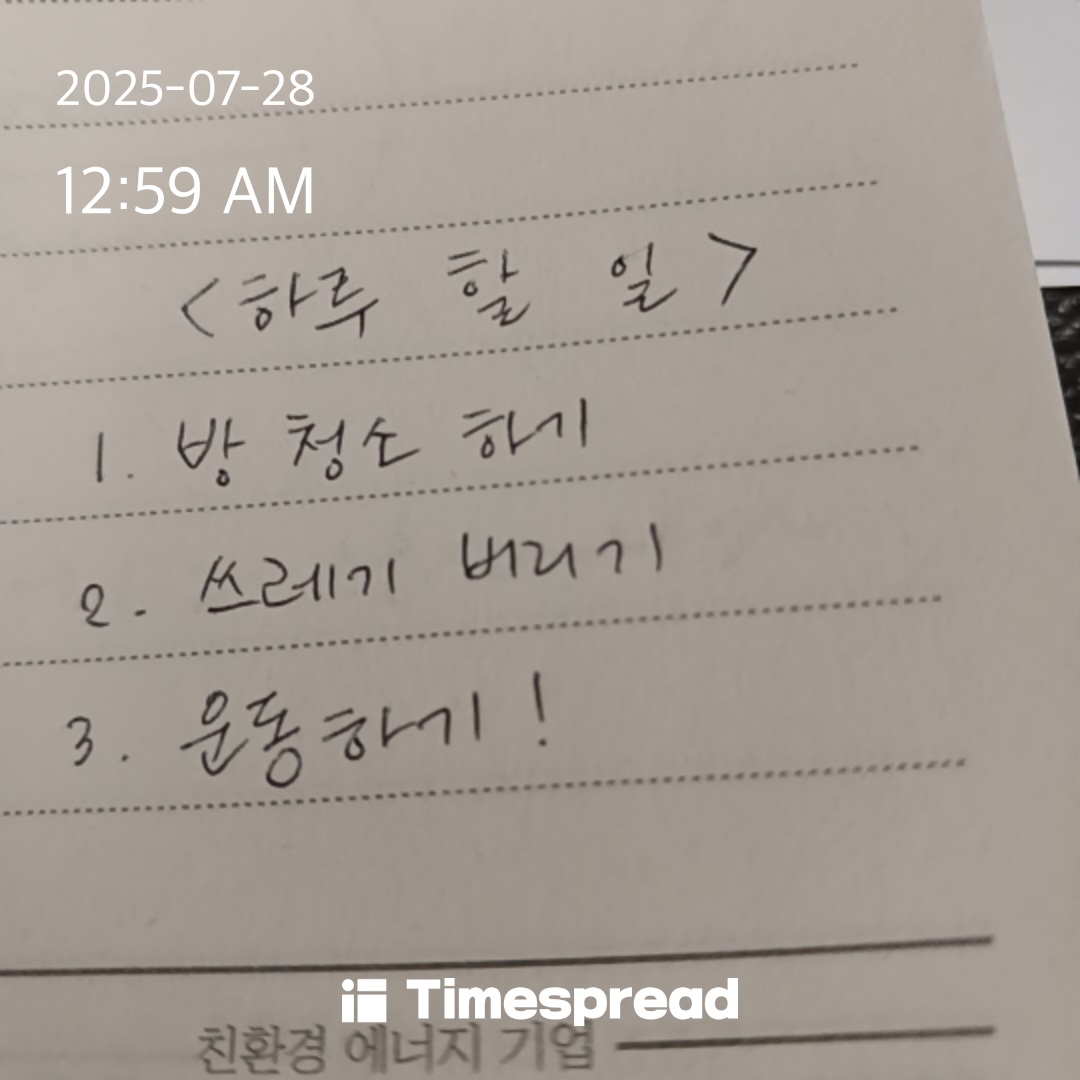 2025-07-28
12:59 AM
<하루 할 일>
1. 방 청소 하기
2. 쓰레기 버리기
3. 운동하기!
Timespread
친환경 에너지 기업